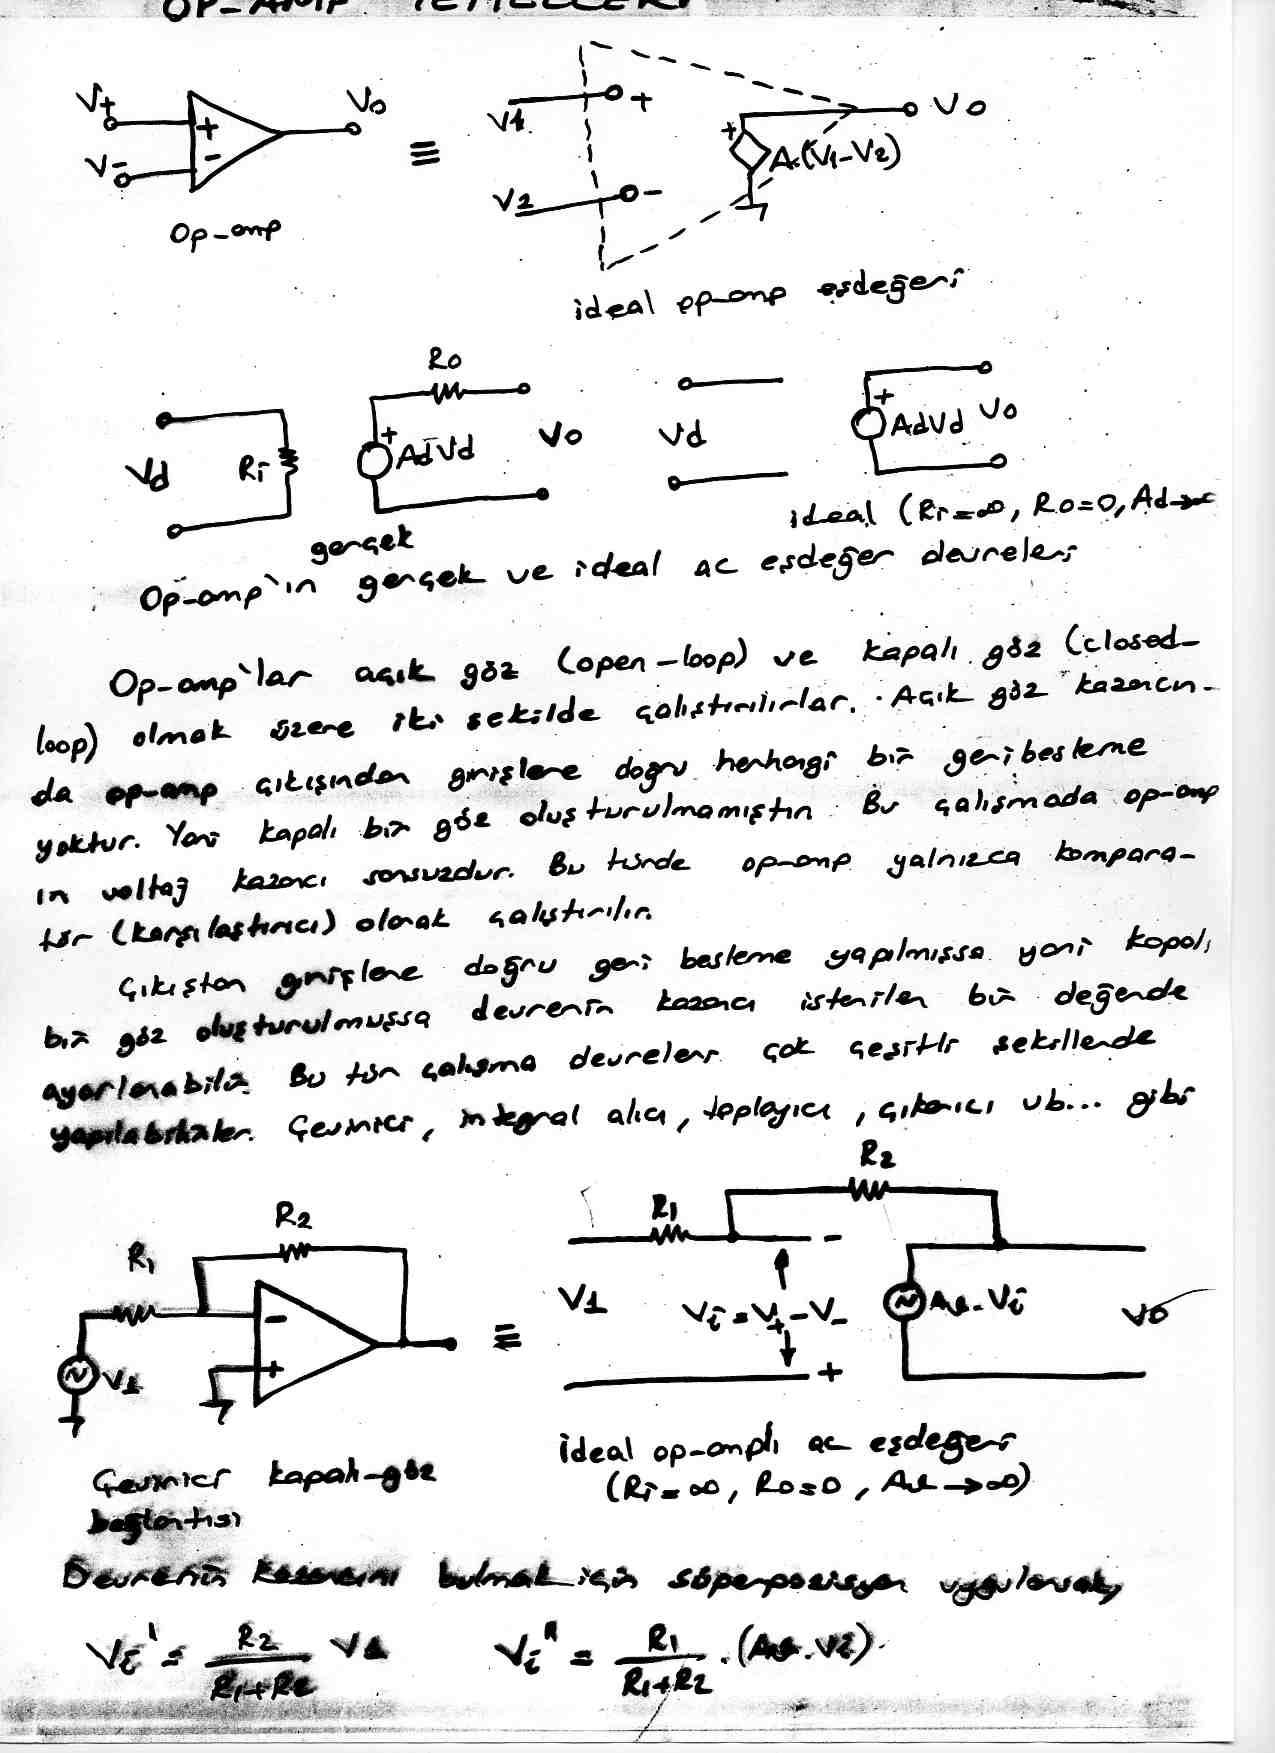 OP-AMP TEMELLERİ
V+ Vo
V-
+
-
Op-amp
≡
V1 +
V2 -
+ A.(V1-V2)
Vo
ideal op-amp eşdeğeri
Vd Ri
Ro
+ AdVd Vo
gerçek
Vd
+ AdVd Vo
ideal (Ri=∞, Ro=0, Ad→∞
Op-amp`ın gerçek ve ideal ac eşdeğer devreleri
Op-amp`lar açık göz (open-loop) ve kapalı göz (closed-
loop) olmak üzere iki şekilde çalıştırılırlar. Açık göz kazancın-
da op-amp çıkışından girişlere doğru herhangi bir geribesleme
yoktur. Yani kapalı bir göz oluşturulmamıştır. Bu çalışmada op-amp
ın voltaj kazancı sonsuzdur. Bu türde op-amp yalnızca kompara-
tör (karşılaştırıcı) olarak çalıştırılır.
Çıkıştan girişlere doğru geri besleme yapılmışsa yani kapalı
bir göz oluşturulmuşsa devrenin kazancı istenilen bir değerde
ayarlanabilir. Bu tür çalışma devreleri çok çeşitli şekillerde
yapılabilirler. Çevirici, integral alıcı, toplayıcı, çıkarıcı vb... gibi
R1 R2
V1
-
+
≡
R1 R2
V1 Vi=V+-V- Av.Vi Vo
-
+
Çevirici kapalı-göz
bağlantısı
İdeal op-amplı ac eşdeğeri
(Ri=∞, Ro=0, Av→∞)
Devrenin kazancını bulmak için süperpozisyon uygularsak,
Vi' = R2/(R1+R2) V1 Vi'' = R1/(R1+R2) .(Av.Vi)